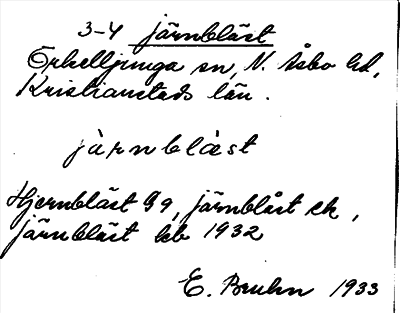 3-4 järnbläst
Örkelljunga sn, N. Åsbo hd,
Kristianstads län.
järnblåst
Hjernbläst Gg, järnblåst ek,
järnbläst bb 1932
E. Bruhn 1933